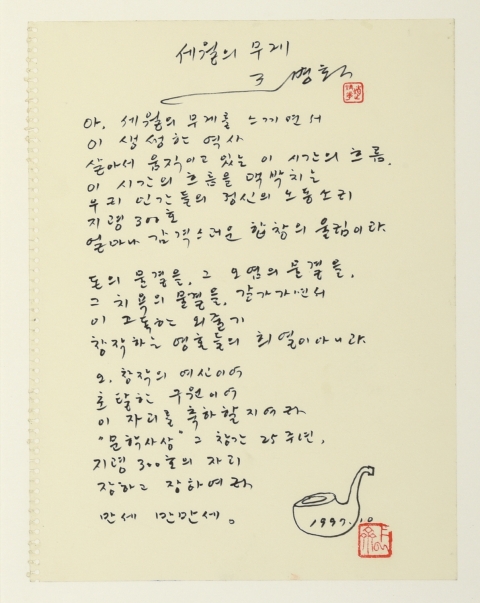 세월의 무게
조병화
아, 세월의 무게를 느끼면서
이 생생한 역사
살아서 움직이고 있는 이 시간의 흐름,
이 시간의 흐름을 맥박치는
우리 인간들의 정신의 노동소리
지령 300호
얼마나 감격스러운 합창의 울림이랴.
돈의 물결을, 그 오염의 물결을,
그 치욕의 물결을, 갈가가면서
이 고독하는 외줄기
창작하는 영혼들의 희열이아니랴.
오, 창작의 여신이여
초탈한 구원이여
이 자리를 축하할지어라
"문학사상" 그 창간 25주년,
지령 300호의 자리
장하고 장하여라
만세 만만세.
1997.10